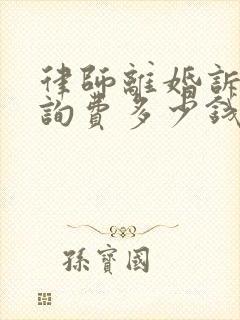 律師離婚訴
詢費多少錢
孫寶國